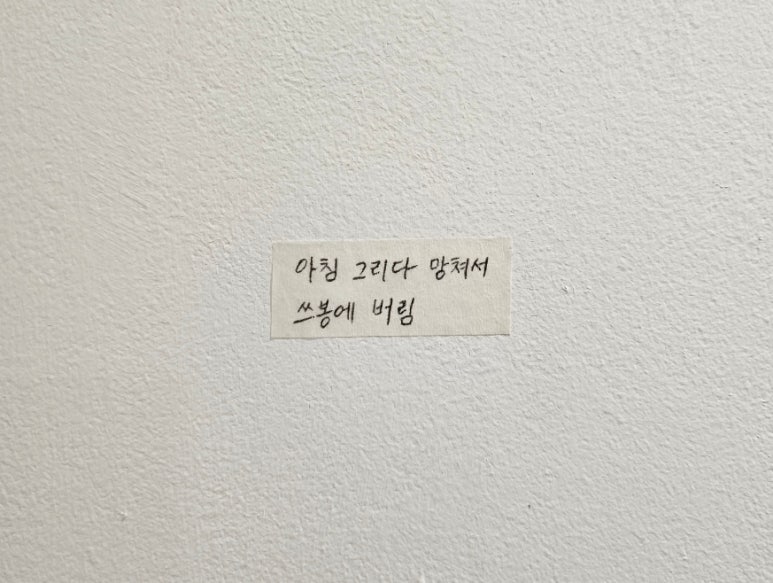 아침 그리다 망쳐서
쓰봉에 버림